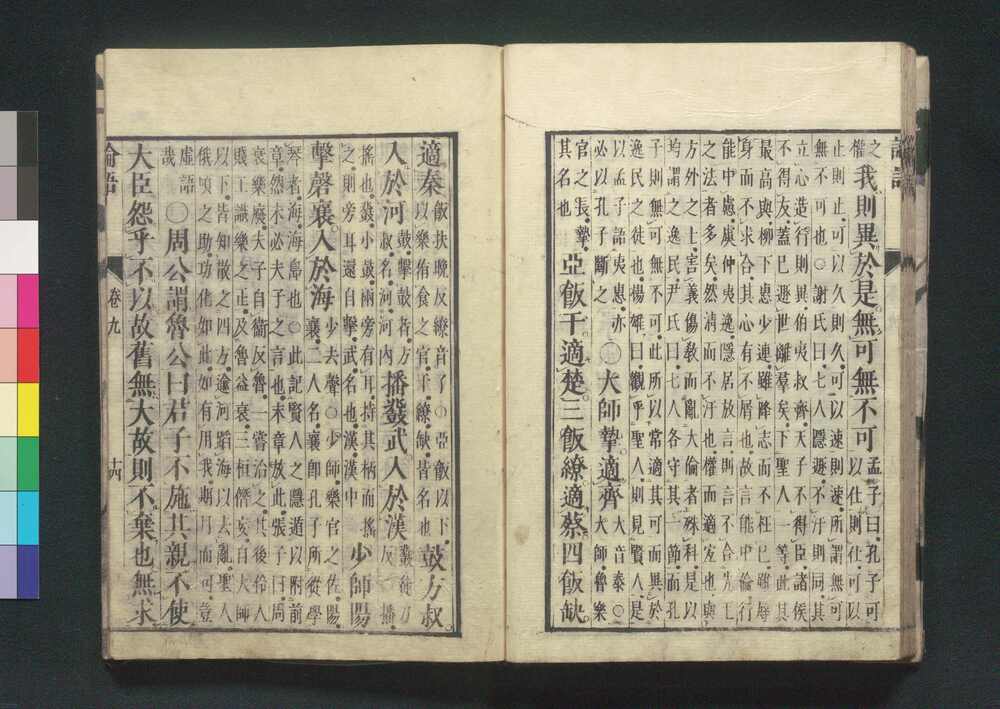 之
權我則異於是無可無不可孟子曰孔子可
以仕則仕可以
止則止可以久則久可以速則速所謂無可
無不可也○謝氏曰七人隱遯不汙則同其
立心造行則異伯夷叔齊天子不得臣諸侯
不得友蓋已遯世離羣矣下聖人一等此其
最高與柳下惠少連雖降志而不枉己雖辱
身而不求合其心有不屑也故言能中倫行
能中慮虞仲夷逸隱居放言則言不合先王
之法者多矣然淸而不汙也權而適宜也與
方外之士害義傷敎而亂大倫者殊科是以
均謂之逸民尹氏曰七人各守其一節而孔
子則無可無不可此所以常適其可而異於
逸民之徒也揚雄曰觀乎聖人則見賢人是
以孟子語夷惠亦
必以孔子斷之
○大師摯適齊
大音泰○
大師魯樂
官之長摯
其名也
亞飯干適楚三飯繚適蔡四飯缺
適秦
飯扶晚反繚音了○亞飯以下
以樂侑食之官干繚缺皆名也
鼓方叔
入於河
鼓擊鼓者方
叔名河河內
播鼗武入於漢
鼗徒刀
反○播
搖也鼗小鼓兩旁有耳持其柄而搖
之則旁耳還自擊武名也漢漢中
少師陽
擊磬襄入於海
少去聲○少師樂官之佐陽
襄二人名襄卽孔子所從學
琴者海海島也○此記賢人之隱遁以附前
章然未必夫子之言也末章放此張子曰周
衰樂廢夫子自衞反魯一嘗治之其後伶人
賤工識樂之正及魯益衰三桓僭妄自大師
以下皆知散之四方逾河蹈海以去亂聖人
俄頃之助功化如此如有用我期月而可豈
虛語
哉
○周公謂魯公曰君子不施其親不使
大臣怨乎不以故舊無大故則不棄也無求
論語
卷九
十六